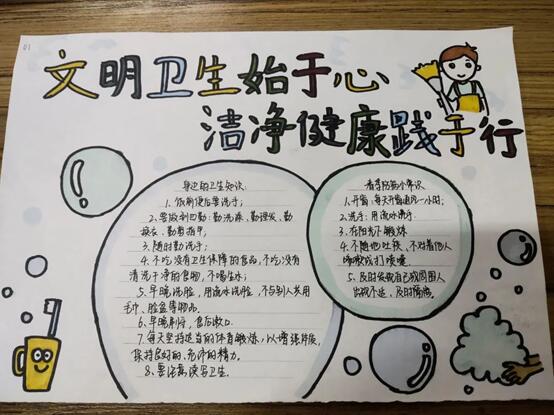 01
文明卫生始于心
洁净健康践于行
身边的卫生知识
1.饭前便后要洗手;
2.要做到四勤:勤洗澡、勤理发、勤
换衣、勤剪指甲,
3.随时勤洗手;
4.不吃没有卫生保障的食品,不吃没有
清洗干净的食物,不喝生水;
5.早晚洗脸,用流水洗脸,不与别人共用
毛巾、脸盆等物品。
6.早晚刷牙,食后漱口.
7.每天坚持适当的体育锻炼,以增强体质,
保持良好的、充沛的精力。
8.要注意读写卫生.
春季防病小常识
1.开窗:每天开窗通风一小时;
2.洗手:用流水洗手;
3.在阳光下锻炼
4.不随地吐痰,不对着他人
咳嗽或打喷嚏.
5.及时发现自己或周围人
出现不适,及时